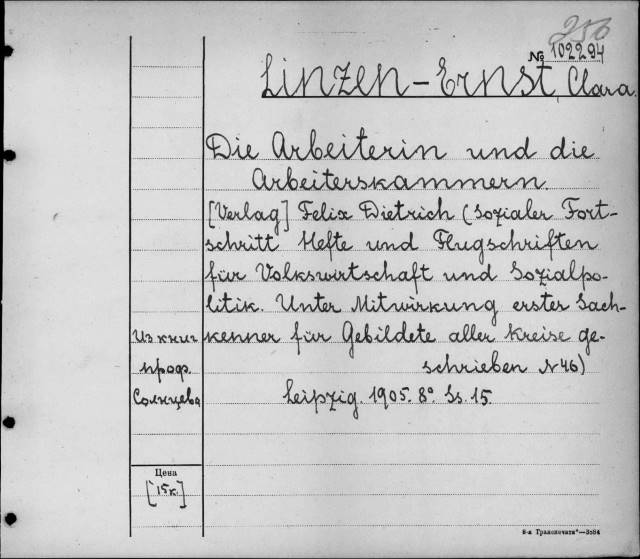 256
№ 102294
Linzen-Ernst, Clara.
Die Arbeiterin und die
Arbeiterskammern.
[Verlag] Felix Dietrich (Sozialer Fort-
schritt Hefte und Flugschriften
für Volkswirtschaft und Sozialpo-
litik. Unter Mitwirkung erster Sach-
Из книг kenner für Gebildete aller Kreise ge-
проф. schrieben N 46)
Солнцева Leipzig. 1905. 8° Ss. 15.
Цена
[15 к.]
8-я „Транспечати"—3584